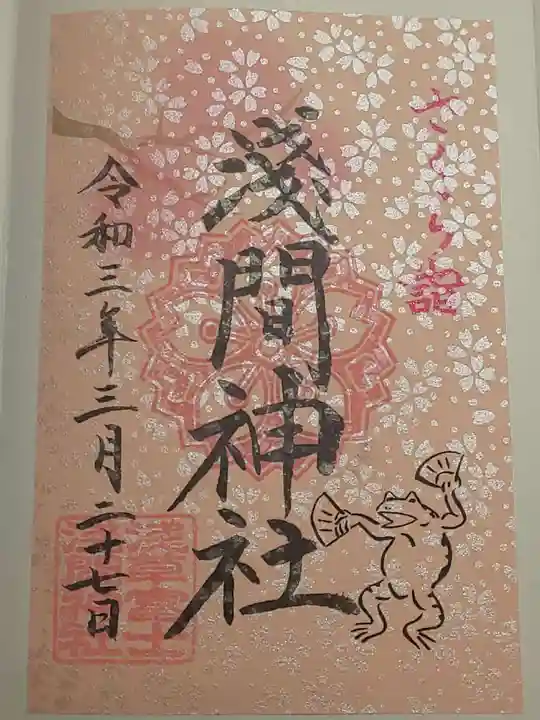 さくら詣
浅間神社
令和三年三月二十七日